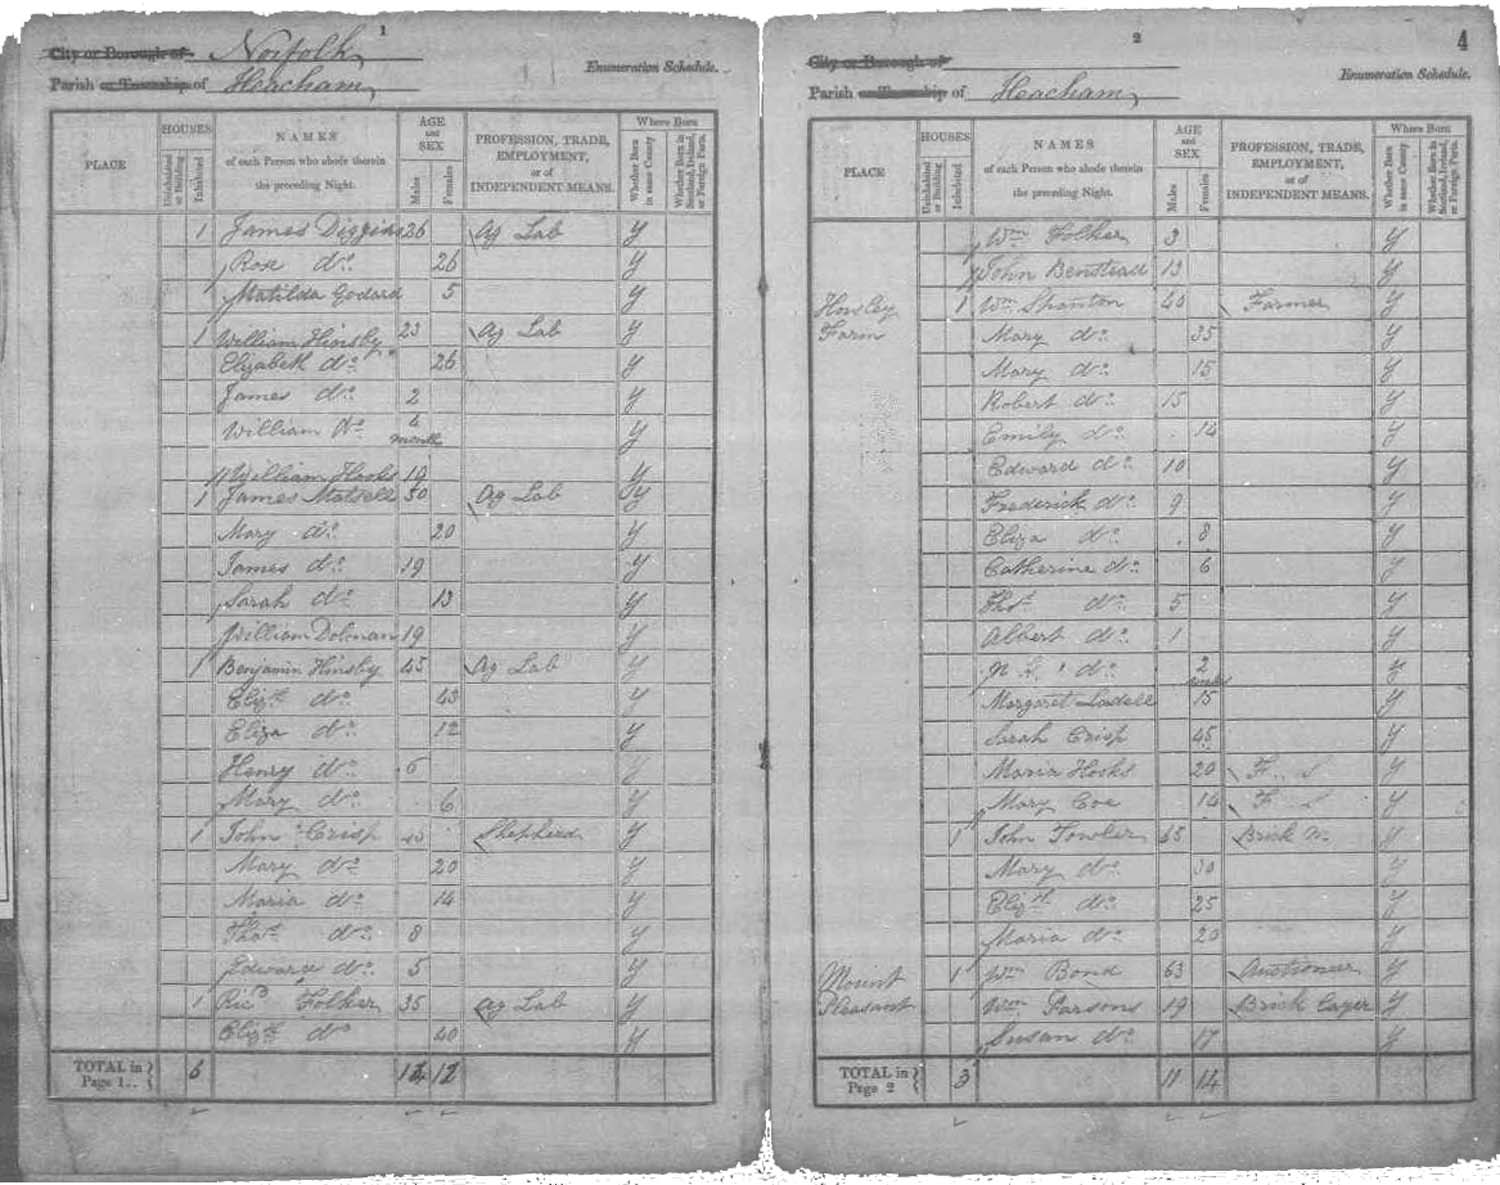 1
City or Borough of Norfolk
Enumeration Schedule.
Parish or Township of Heacham
PLACE HOUSES NAMES of each Person who abode therein the preceding Night. AGE and SEX PROFESSION, TRADE, EMPLOYMENT, or of INDEPENDENT MEANS. Where Born
Uninhabited or Building Inhabited Males Females Whether Born in same County Whether Born in Scotland, Ireland, or Foreign Parts.
1 James Diggins 26 Ag Lab y
Rose do 26 y
Matilda Godard 5 y
1 William Hinsby 23 Ag Lab y
Elizabeth do 26 y
James do 2 y
William do 4 month y
William Hooks 19 y
1 James Matsell 50 Ag Lab y
Mary do 20 y
James do 19 y
Sarah do 13 y
William Dolman 19 y
1 Benjamin Hinsby 45 Ag Lab y
Elizth do 43 y
Eliza do 12 y
Henry do 6 y
Mary do 6 y
1 John Crisp Shepherd y
Mary do 20 y
Maria do 14 y
Thos do 8 y
Edward do 5 y
1 Ricd Folker 35 Ag Lab y
Elizth do 40 y
TOTAL in Page 1.. 6 12
2
4
City or Borough of
Enumeration Schedule.
Parish or Township of Heacham
PLACE HOUSES NAMES of each Person who abode therein the preceding Night. AGE and SEX PROFESSION, TRADE, EMPLOYMENT, or of INDEPENDENT MEANS. Where Born
Uninhabited or Building Inhabited Males Females Whether Born in same County Whether Born in Scotland, Ireland, or Foreign Parts.
Wm Folker 3 y
John Benstead 13 y
Howley 1 Wm Stanton 40 Farmer y
Farm Mary do 35 y
Mary do 15 y
Robert do 15 y
Emily do 14 y
Edward do 10 y
Frederick do 9 y
Eliza do 8 y
Catherine do 6 y
Thos do 5 y
Albert do 1 y
N do 2 y
Margaret Ladell 15 y
Sarah Crisp 45 y
Maria Hooks 20 F. S y
Mary Coe 14 F S y
1 John Fowler 65 Brick M. y
Mary do 30 y
Elizth do 25 y
Maria do 20 y
Mount 1 Wm Bond 63 Auctioneer y
Pleasant Wm Parsons 19 Brick Layer y
Susan do 17 y
TOTAL in Page 2 3 11 14